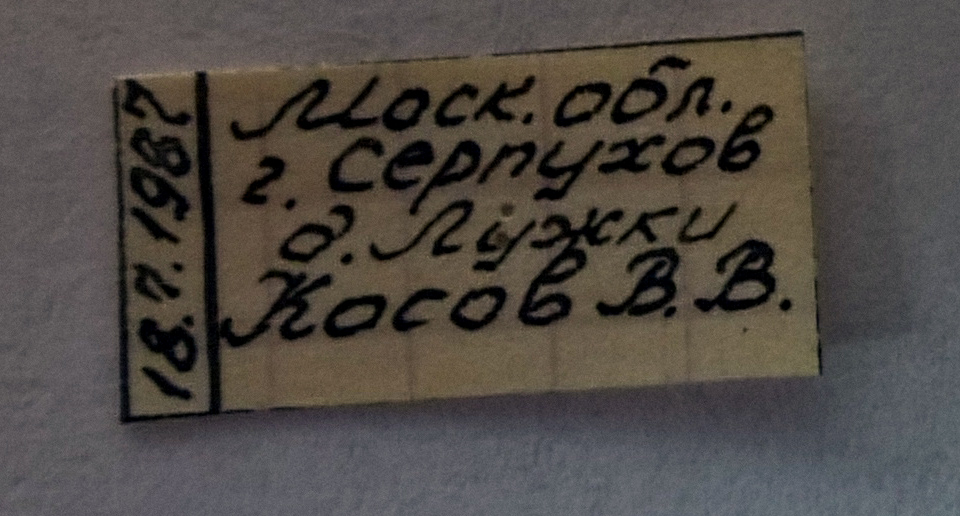 18.7.1987
Моск. обл.
г. Серпухов
д. Лужки
Косов В.В.